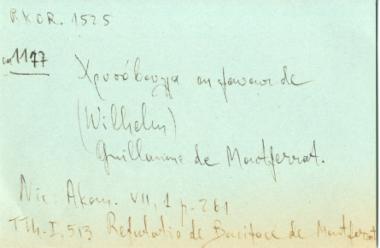 RKOR. 1525
ca 1177
Χρυσόβουλλα en faveur de
(Wilhelm)
Guillaume de Montferrat.
Nic. Akom. VII, 1 p. 261
TTh. I, 513 Refutatio de Boniface de Montferrat